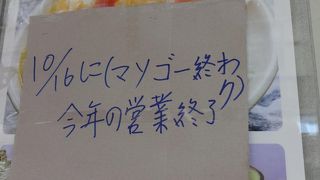 10/16に(マンゴー終わり)
今年の営業終了